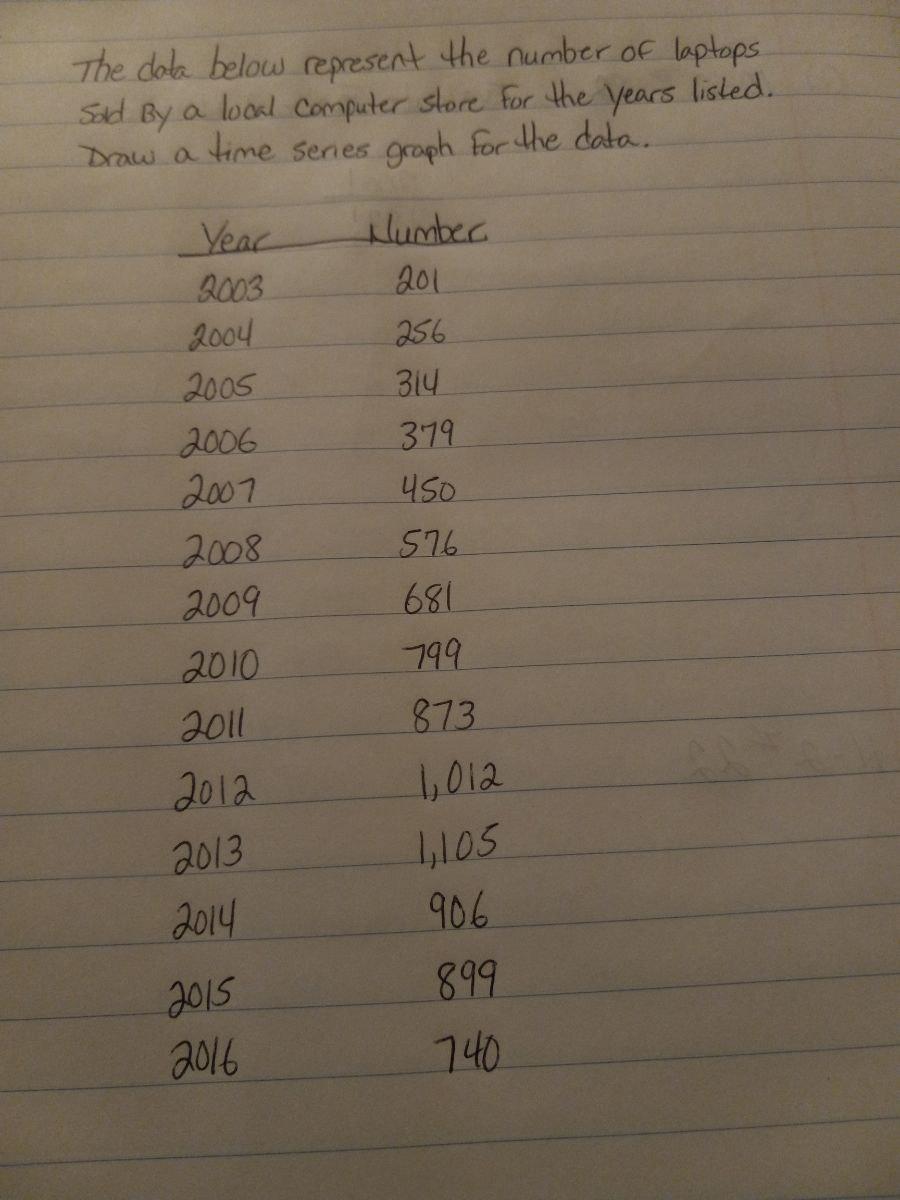 The data below represent the number of laptops
Sold By a local computer store for the years listed.
Draw a time series graph for the data.
Year Number
2003 201
2004 256
2005 314
2006 379
2007 450
2008 576
2009 681
2010 799
2011 873
2012 1,012
2013 1,105
2014 906
2015 899
2016 740